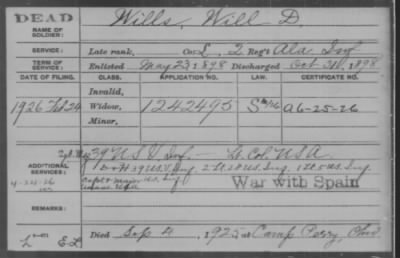 DEAD
NAME OF SOLDIER: Wills, Will D.
SERVICE: Late rank, Co. L. 2 Reg't Ala Inf
TERM OF SERVICE: Enlisted May 23, 1898 Discharged Oct 31, 1898
DATE OF FILING. CLASS. APPLICATION NO. LAW. CERTIFICATE NO.
Invalid,
1926 Feb 24 Widow, 1242495 A6-25-26
Minor,
ADDITIONAL SERVICES: 39 U S V Inf. — Lt. Col. U.S.A.
39 U.S.V. Inf 2 Lt 28 U.S. Inf. 1 Lt 5 U.S. Inf.
Capt & Major U.S. Inf
4-24-26
War with Spain
REMARKS:
Died Sep 4, 1925, at Camp Perry, Ohio